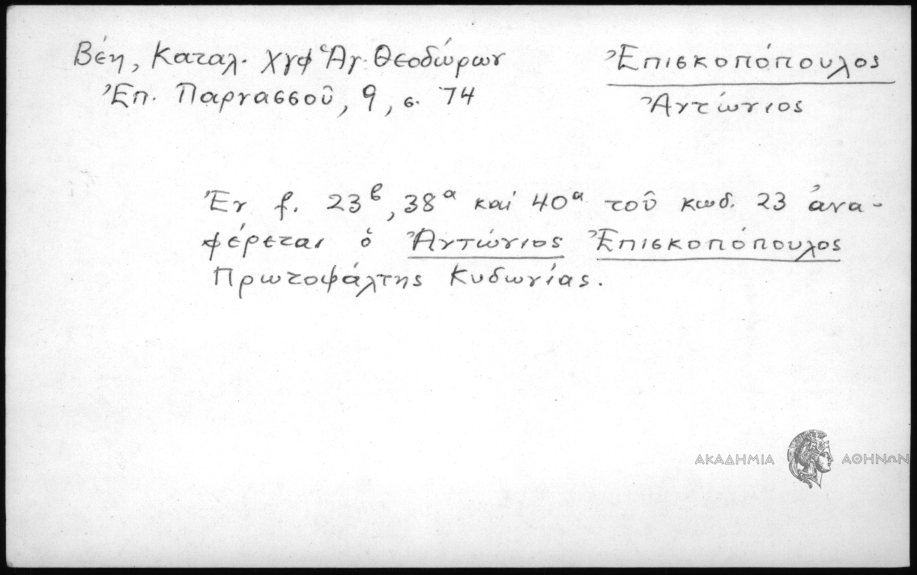 Βέη, Καταλ. χγφ Ἁγ. Θεοδώρων
Ἐπ. Παρνασσοῦ, 9, σ. 74
Ἐπισκοπόπουλος
Ἀντώνιος
Ἐν f. 23β, 38α καί 40α τοῦ κωδ. 23 ἀνα-
φέρεται ὁ Ἀντώνιος Ἐπισκοπόπουλος
Πρωτοψάλτης Κυδωνίας.
ΑΚΑΔΗΜΙΑ ΑΘΗΝΩΝ